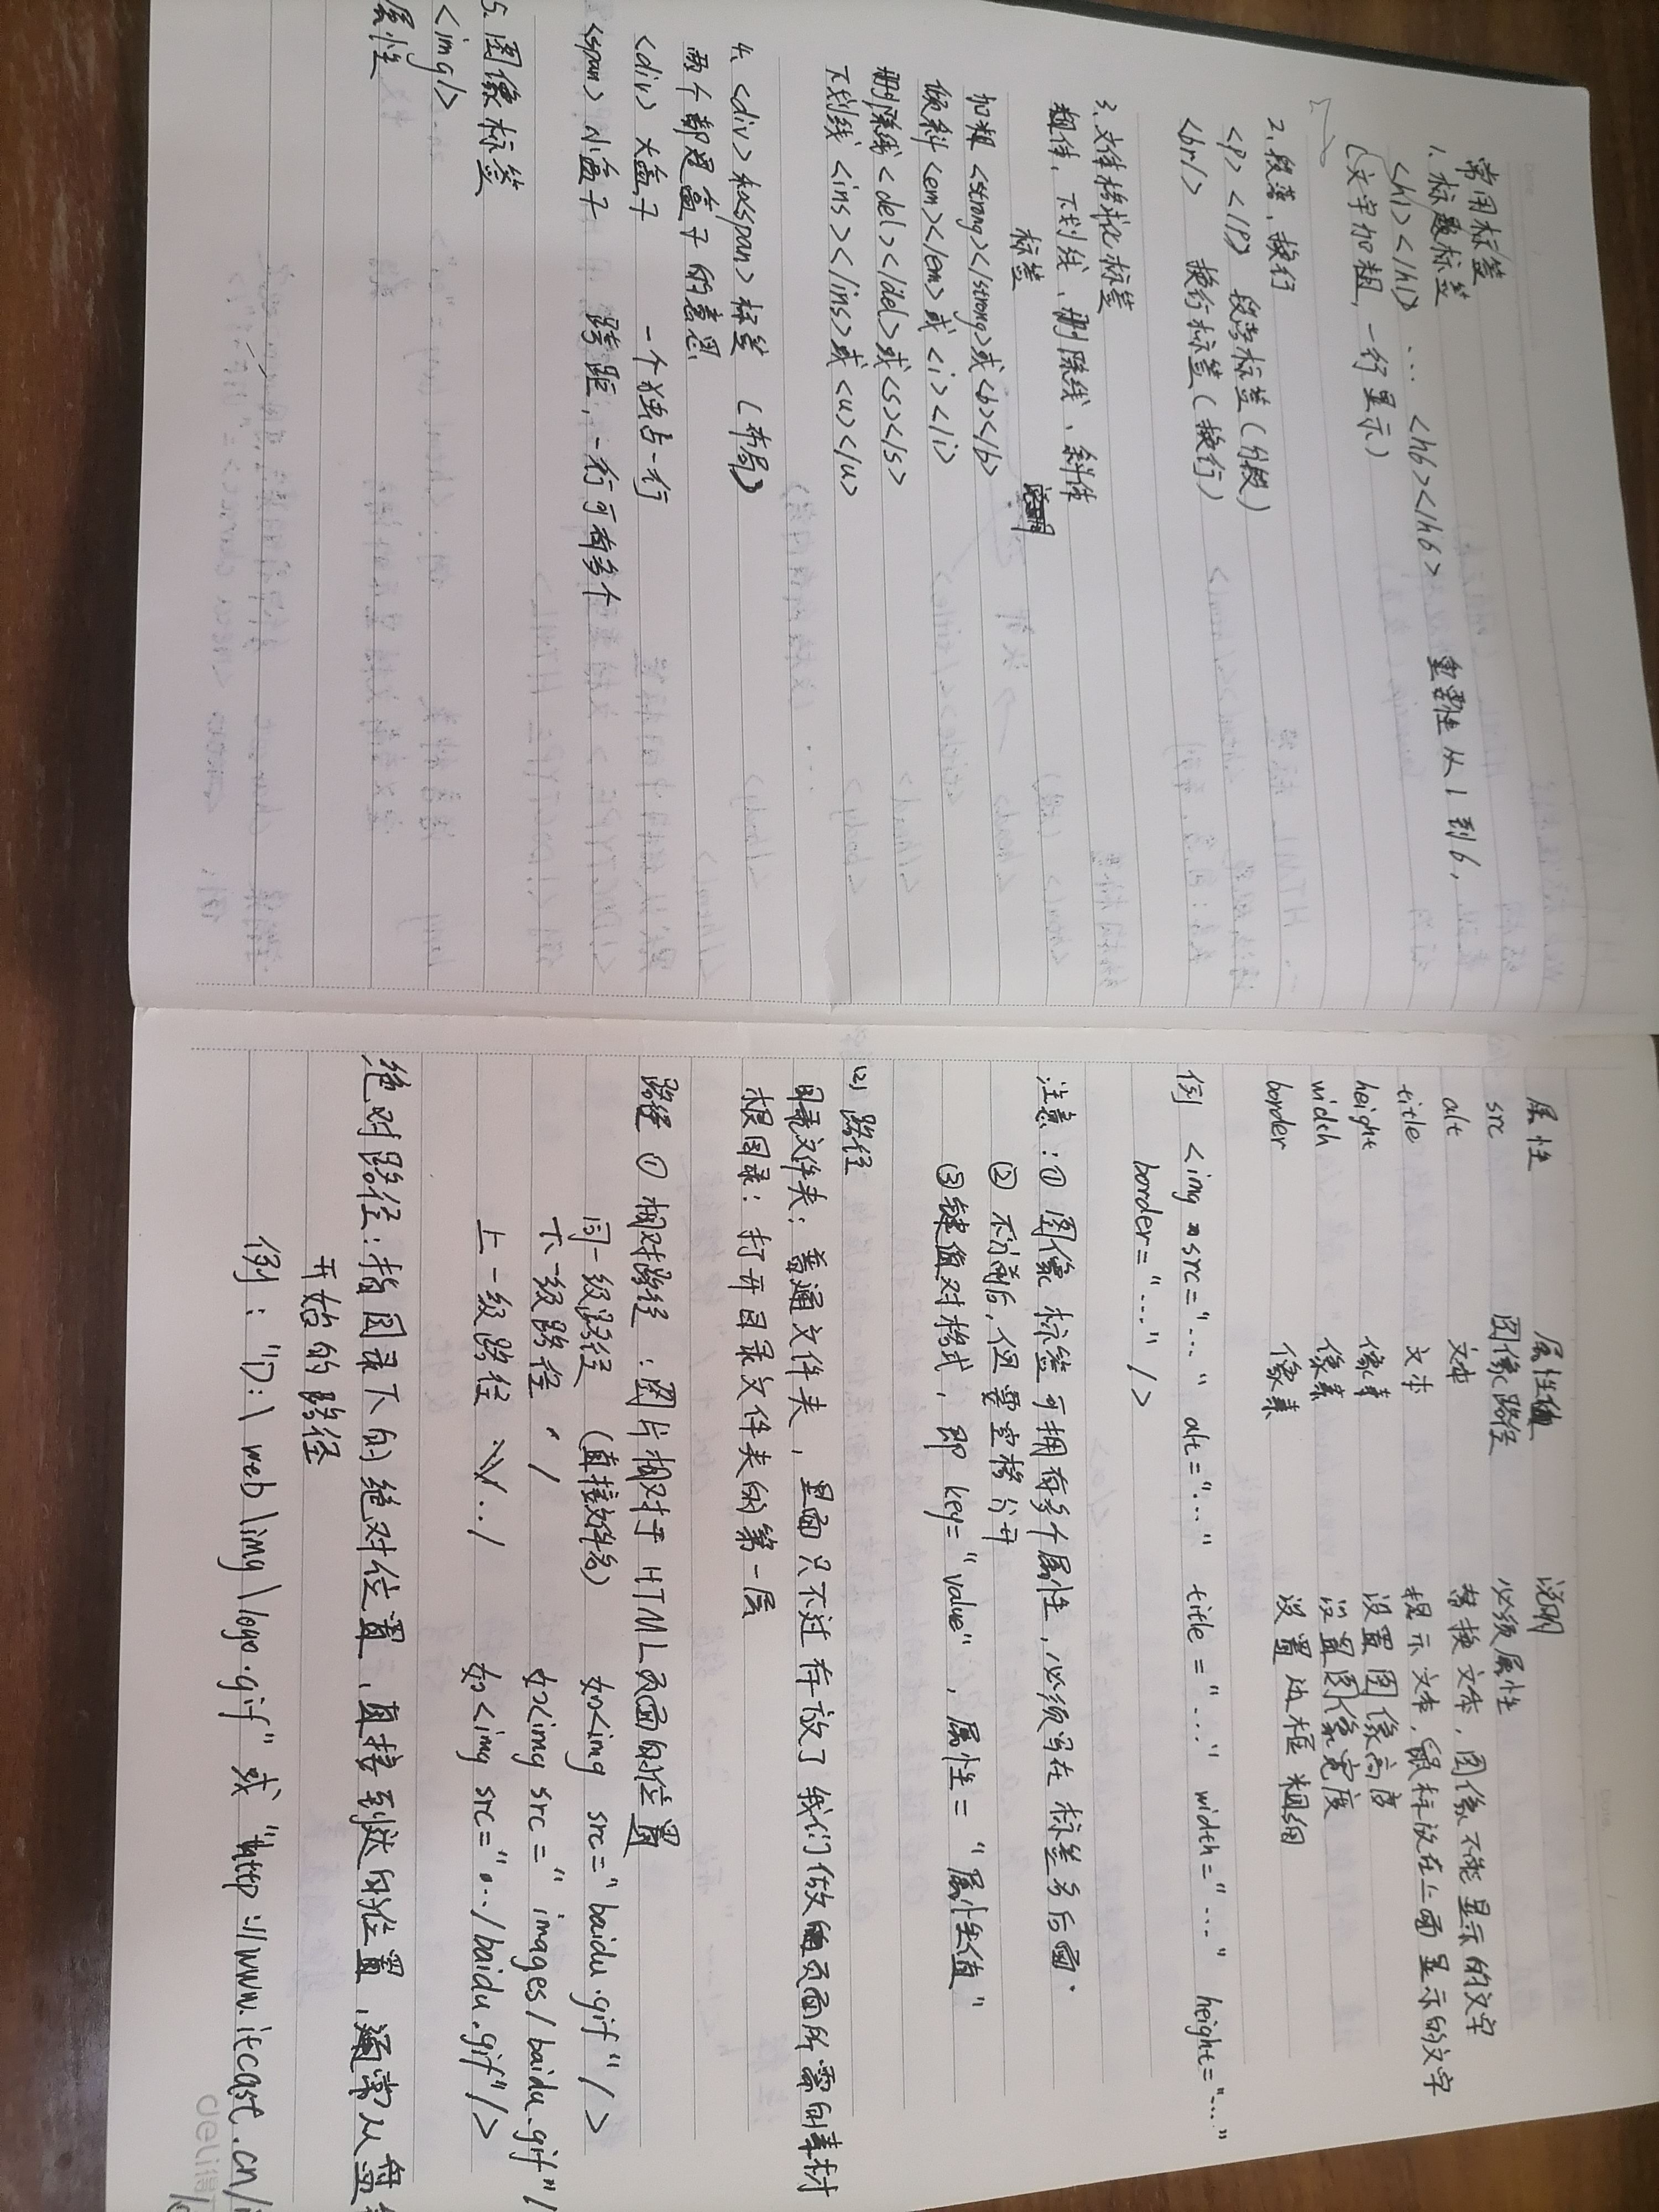 常用标签
1. 标题标签
<h1></h1> ... <h6></h6> 重要性从1到6,
(文字加粗,一行显示)
2. 段落、换行
<p></p> 段落标签(分段)
<br/> 换行标签(换行)
3. 文体格式化标签
粗体、下划线、删除线、斜体
标签
加粗 <strong></strong>或<b></b>
倾斜<em></em>或<i></i>
删除线<del></del>或<s></s>
下划线<ins></ins>或<u></u>
4. <div>和<span>标签 (布局)
两个都是盒子的意思
<div> 大盒子 一个独占一行
<span> 小盒子 跨距,一行可有多个
5. 图像标签
<img/>
属性
属性 属性值 说明
src 图像路径 必须属性
alt 文本 替换文本,图像不能显示的文字
title 文本 提示文本,鼠标放在上面显示的文字
height 像素 设置图像高度
width 像素 设置图像宽度
border 像素 设置边框粗细
例 <img src="..." alt="..." title="..." width="..." height="..."
border="..." />
注意:① 图像标签可拥有多个属性,必须写在标签名后面.
② 不分前后,但要空格分开
③键值对格式,即 key="value",属性="属性值"
(2) 路径
目录文件夹:普通文件夹,里面只不过存放了我们做的页面所需的素材
根目录:打开目录文件夹的第一层
路径 ① 相对路径:图片相对于HTML页面的位置
同一级路径 (直接文件名) 如<img src="baidu.gif"/>
下一级路径 / 如<img src="images/baidu.gif"/
上一级路径 ../ 如<img src=".../baidu.gif"/>
绝对路径:指目录下的绝对位置,直接到达的位置,通常从盘
开始的路径
例:"D:\web\img\logo.gif" 或 "http://www.itcast.cn/
deli